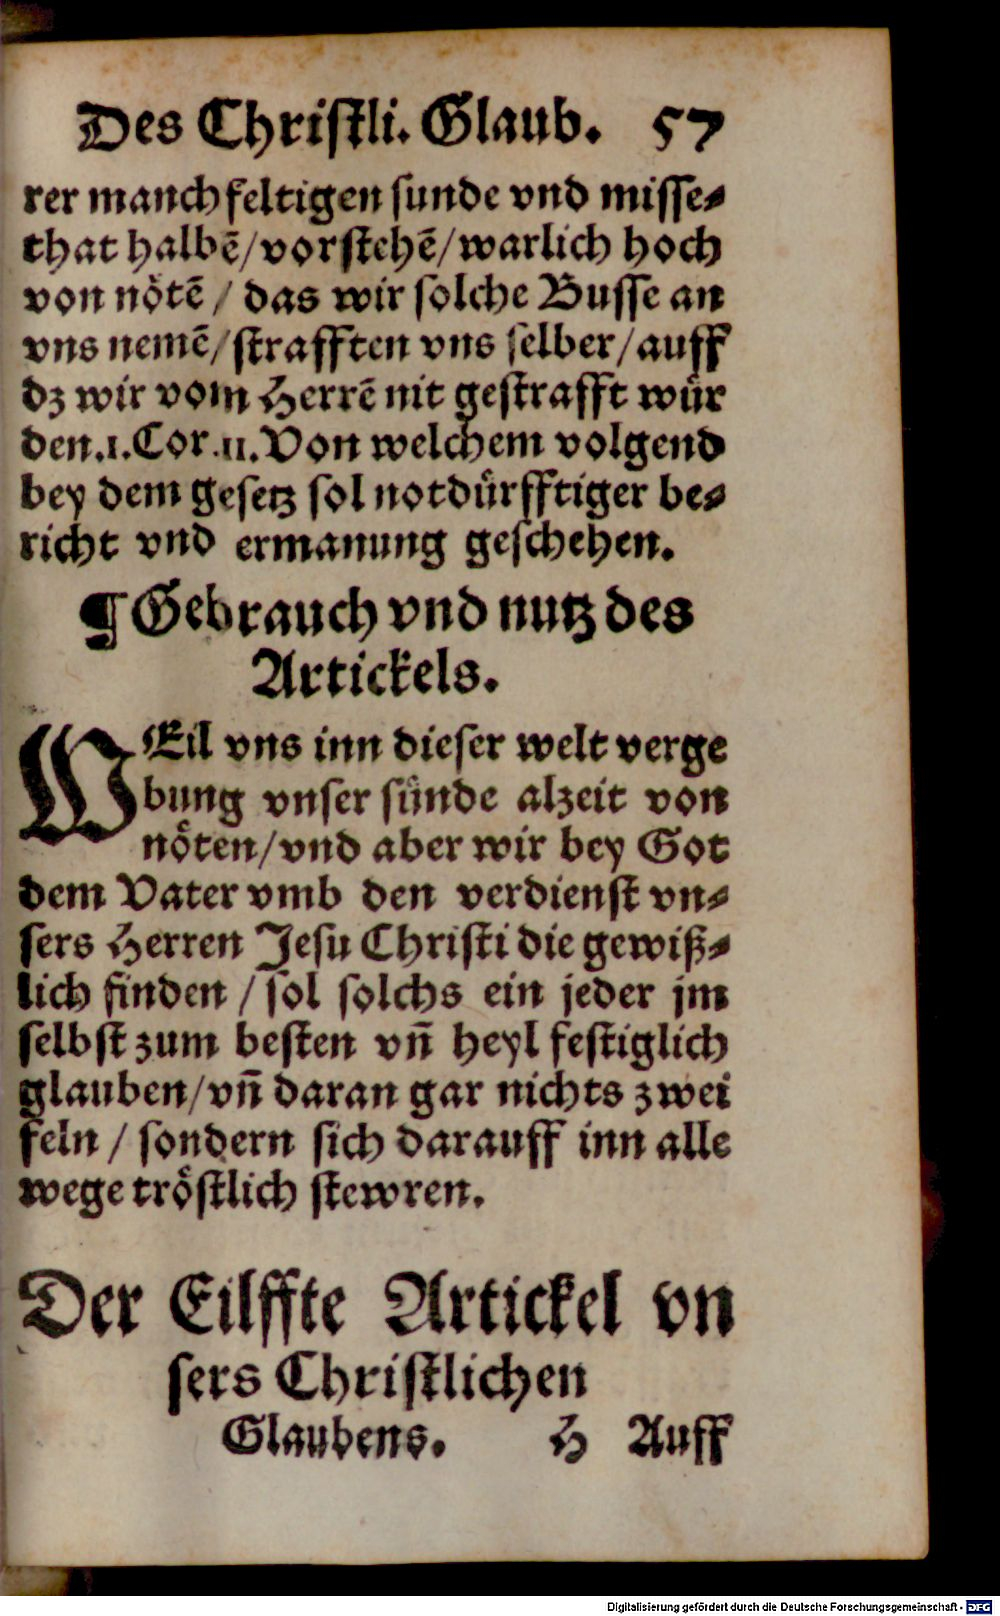 Des Christli. Glaub. 57
rer manchfeltigen sunde vnd misse⸗
that halbē/vorstehē/warlich hoch
von nötē / das wir solche Busse an
vns nemē/strafften vns selber/auff
dz wir vom Herrē nit gestrafft wür
den.1.Cor.11.Von welchem volgend
bey dem gesetz sol notdürfftiger be⸗
richt vnd ermanung geschehen.
¶ Gebrauch vnd nutz des
Artickels.
WEil vns inn dieser welt verge
bung vnser sünde alzeit von
nöten/vnd aber wir bey Got
dem Vater vmb den verdienst vn⸗
sers Herren Jesu Christi die gewiß⸗
lich finden / sol solchs ein jeder jm
selbst zum besten vn̄ heyl festiglich
glauben/vn̄ daran gar nichts zwei
feln / sondern sich darauff inn alle
wege tröstlich stewren.
Der Eilffte Artickel vn
sers Christlichen
Glaubens. H Auff
Digitalisierung gefördert durch die Deutsche Forschungsgemeinschaft - DFG